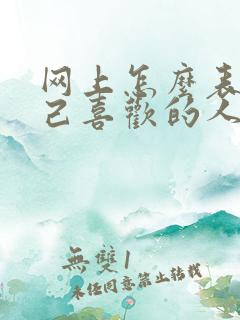 网上怎麼表
己喜歡的人
無雙1
未经同意禁止转载